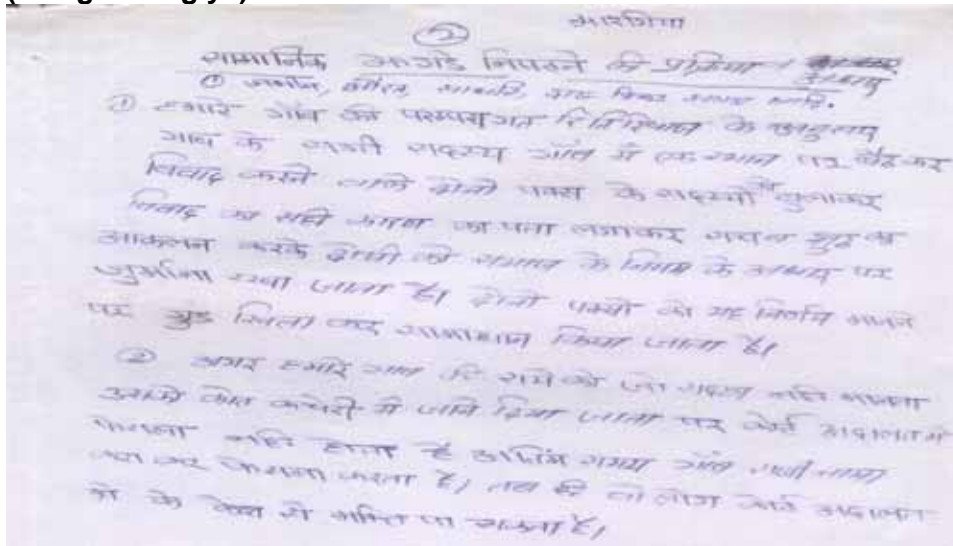 ② भारगिया
सामाजिक झगडे निपटने की प्रक्रिया।
① जमीन, औरत,
① हमारे गाँव की परम्परागत रितिरिवाज के अनुसार
गाव के सभी सदस्य गाँव में एक स्थान पर बैठकर
विवाद करने वाले दोनो पक्स के सदस्यों को बुलाकर
विवाद का सही कारण का पता लगाकर
आकलन करके दोषी को समाज के नियम के आधार पर
जुर्माना रखा जाता है। दोनो पक्षो को यह निर्णय मानने
पर गुड खिला कर समाधान किया जाता है।
② अगर हमारे गाव को जो सदस्य नही मानता
उसको कोट कचेरी में जाने दिया जाता पर कोर्ट अदालत में
फेसला नही होता है अन्तिम समय गाँव
कर फेसला करता है, तब ही वो लोग कोर्ट अदालत
के केस से मुक्ति पा सकता है।